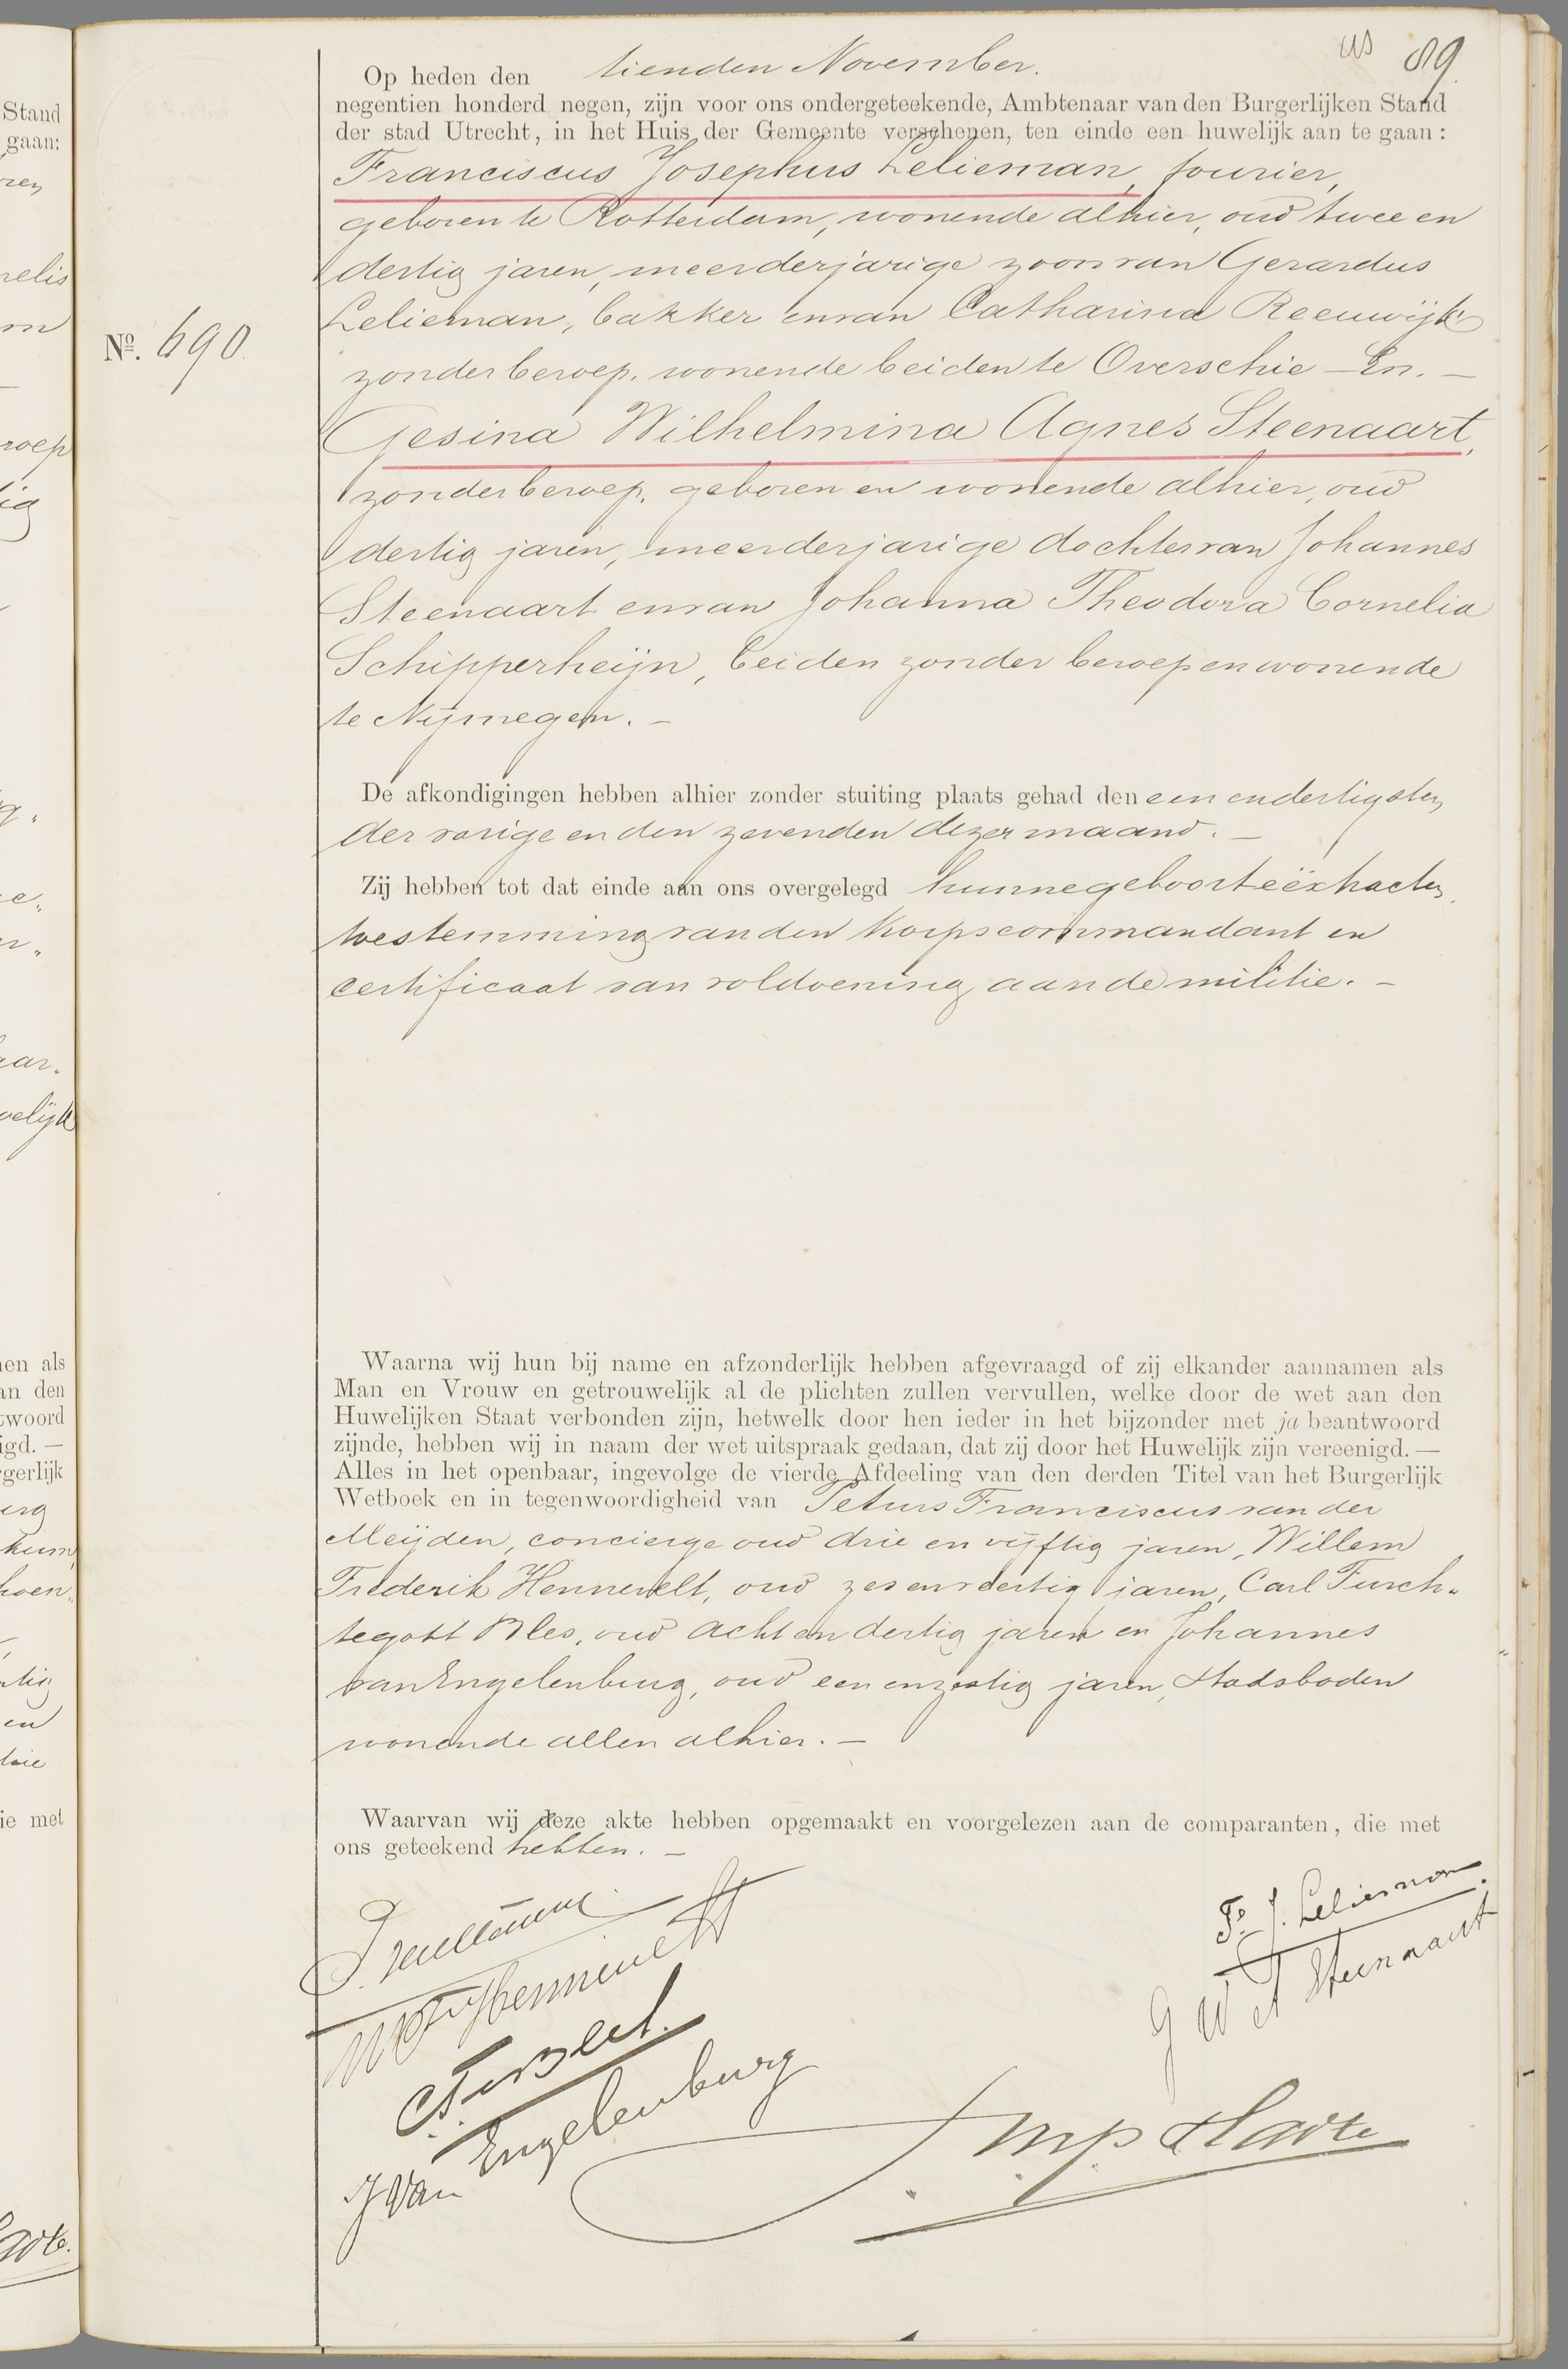 89.
Op heden den tienden November.
negentien honderd negen, zijn voor ons ondergeteekende, Ambtenaar van den Burgerlijken Stand
der stad Utrecht, in het Huis der Gemeente verschenen, ten einde een huwelijk aan te gaan:
Franciscus Josephus Lelieman, fourier,
geboren te Rotterdam, wonende alhier, oud twee en
dertig jaren, meerderjarige zoon van Gerardus
Lelieman, bakker en van Catharina Reeuwijk
No. 690.
zonder beroep, wonende beiden te Overschie – En. –
Gesina Wilhelmina Agnes Steenaart,
zonder beroep, geboren en wonende alhier, oud
dertig jaren, meerderjarige dochter van Johannes
Steenaart en van Johanna Theodora Cornelia
Schipperheijn, beiden zonder beroep en wonende
te Nijmegen. –
De afkondigingen hebben alhier zonder stuiting plaats gehad den een en dertigsten
der vorige en den zevenden dezer maand. –
Zij hebben tot dat einde aan ons overgelegd hunne geboorteëxtracten,
toestemming van den Korpscommandant en
certificaat van voldoening aan de militie. –
Waarna wij hun bij name en afzonderlijk hebben afgevraagd of zij elkander aannamen als
Man en Vrouw en getrouwelijk al de plichten zullen vervullen, welke door de wet aan den
Huwelijken Staat verbonden zijn, hetwelk door hen ieder in het bijzonder met ja beantwoord
zijnde, hebben wij in naam der wet uitspraak gedaan, dat zij door het Huwelijk zijn vereenigd. —
Alles in het openbaar, ingevolge de vierde Afdeeling van den derden Titel van het Burgerlijk
Wetboek en in tegenwoordigheid van Petrus Franciscus van der
Meijden, concierge oud drie en vijftig jaren, Willem
Frederik Hennevelt, oud zes en veertig jaren, Carl Furch-
tegott Bles, oud acht en dertig jaren en Johannes
van Engelenburg, oud een en zestig jaren, stadsboden
wonende allen alhier. –
Waarvan wij deze akte hebben opgemaakt en voorgelezen aan de comparanten, die met
ons geteekend hebben. –
F. J. Lelieman
G W A Steenaart
C. F. Bles.
J van Engelenburg